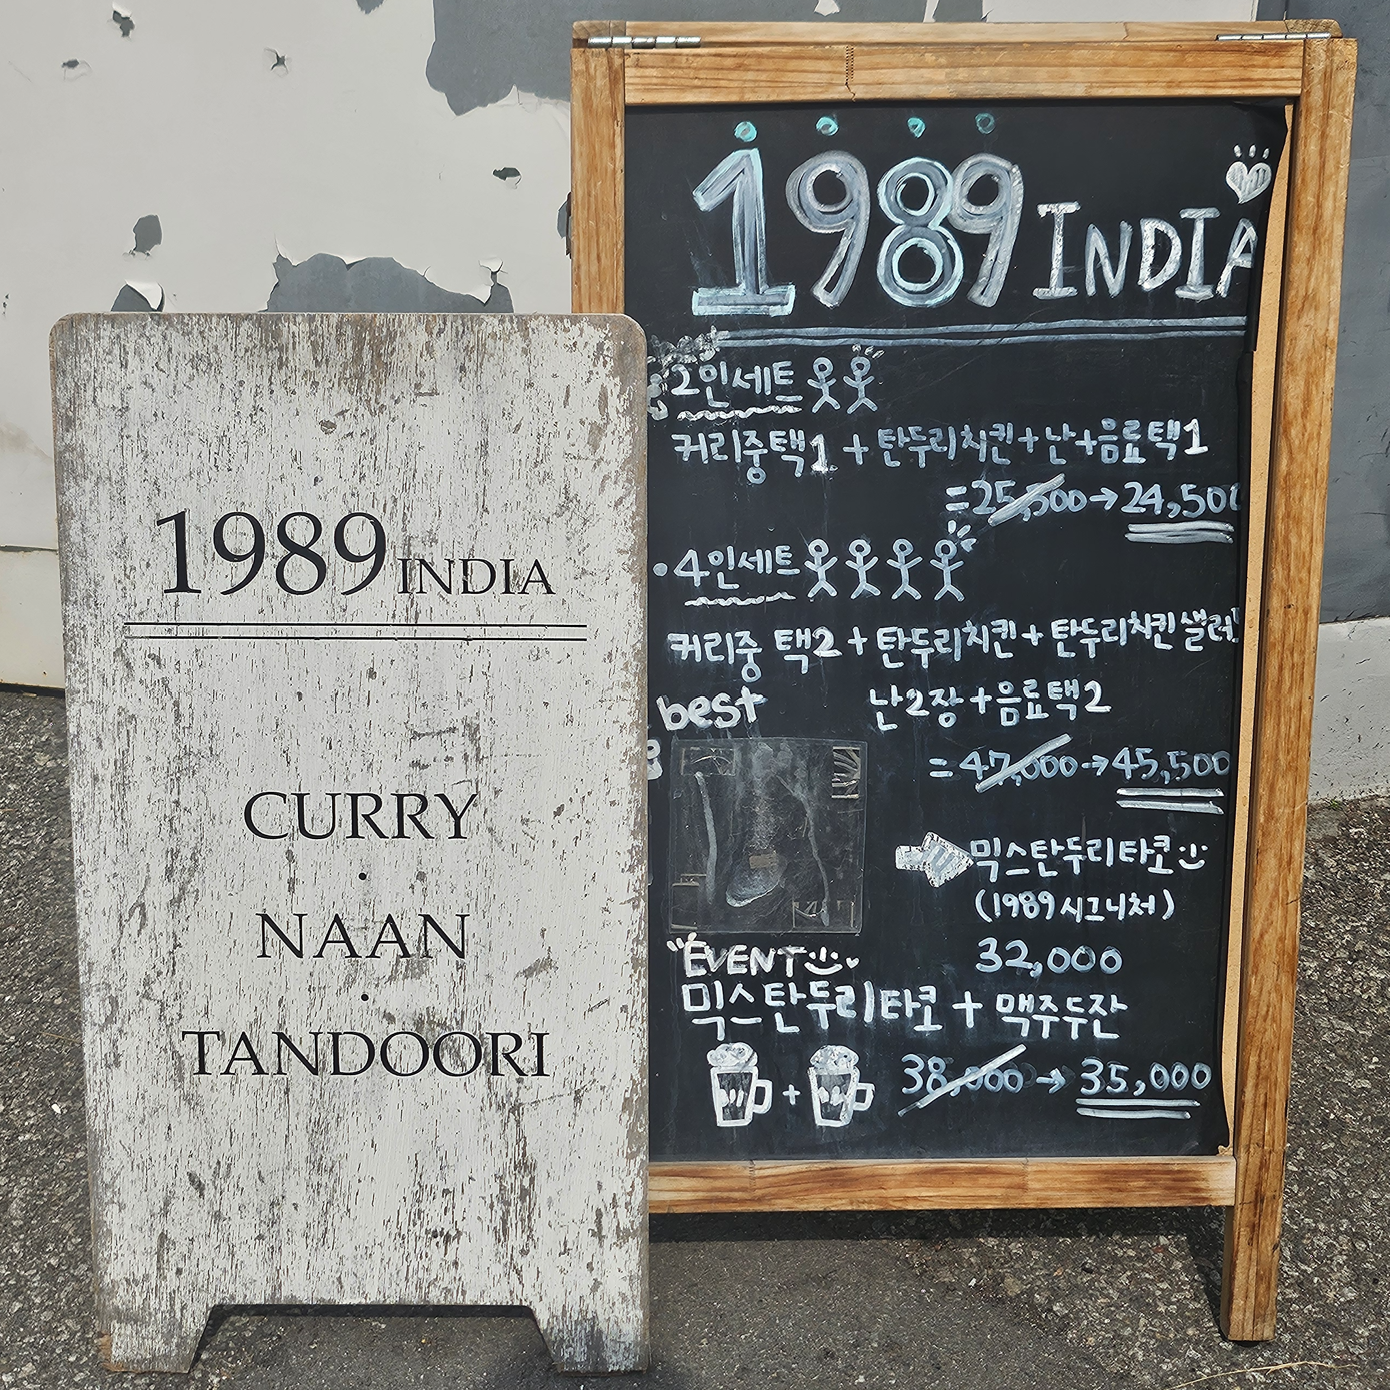 1989 INDIA
CURRY
•
NAAN
•
TANDOORI
1989 INDIA
2인세트
커리중택1 + 탄두리치킨+난+음료택1
=25,500→24,500
•4인세트
커리중 택2 + 탄두리치킨+ 탄두리치킨샐러
난2장+음료택2
=47,000→45,500
best
믹스탄두리타코
(1989 시그니처)
32,000
"EVENT
믹스탄두리타코 + 맥주두잔
+ 38,000 → 35,000